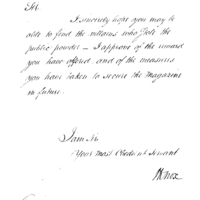 Sir.
I sincerely hope you may be
able to find the villains who stole the
public powder — I approve of the reward
you have offered and of the measures
you have taken to secure the Magazine
in future.
I am Sir
Your most obedient servant
HKnox